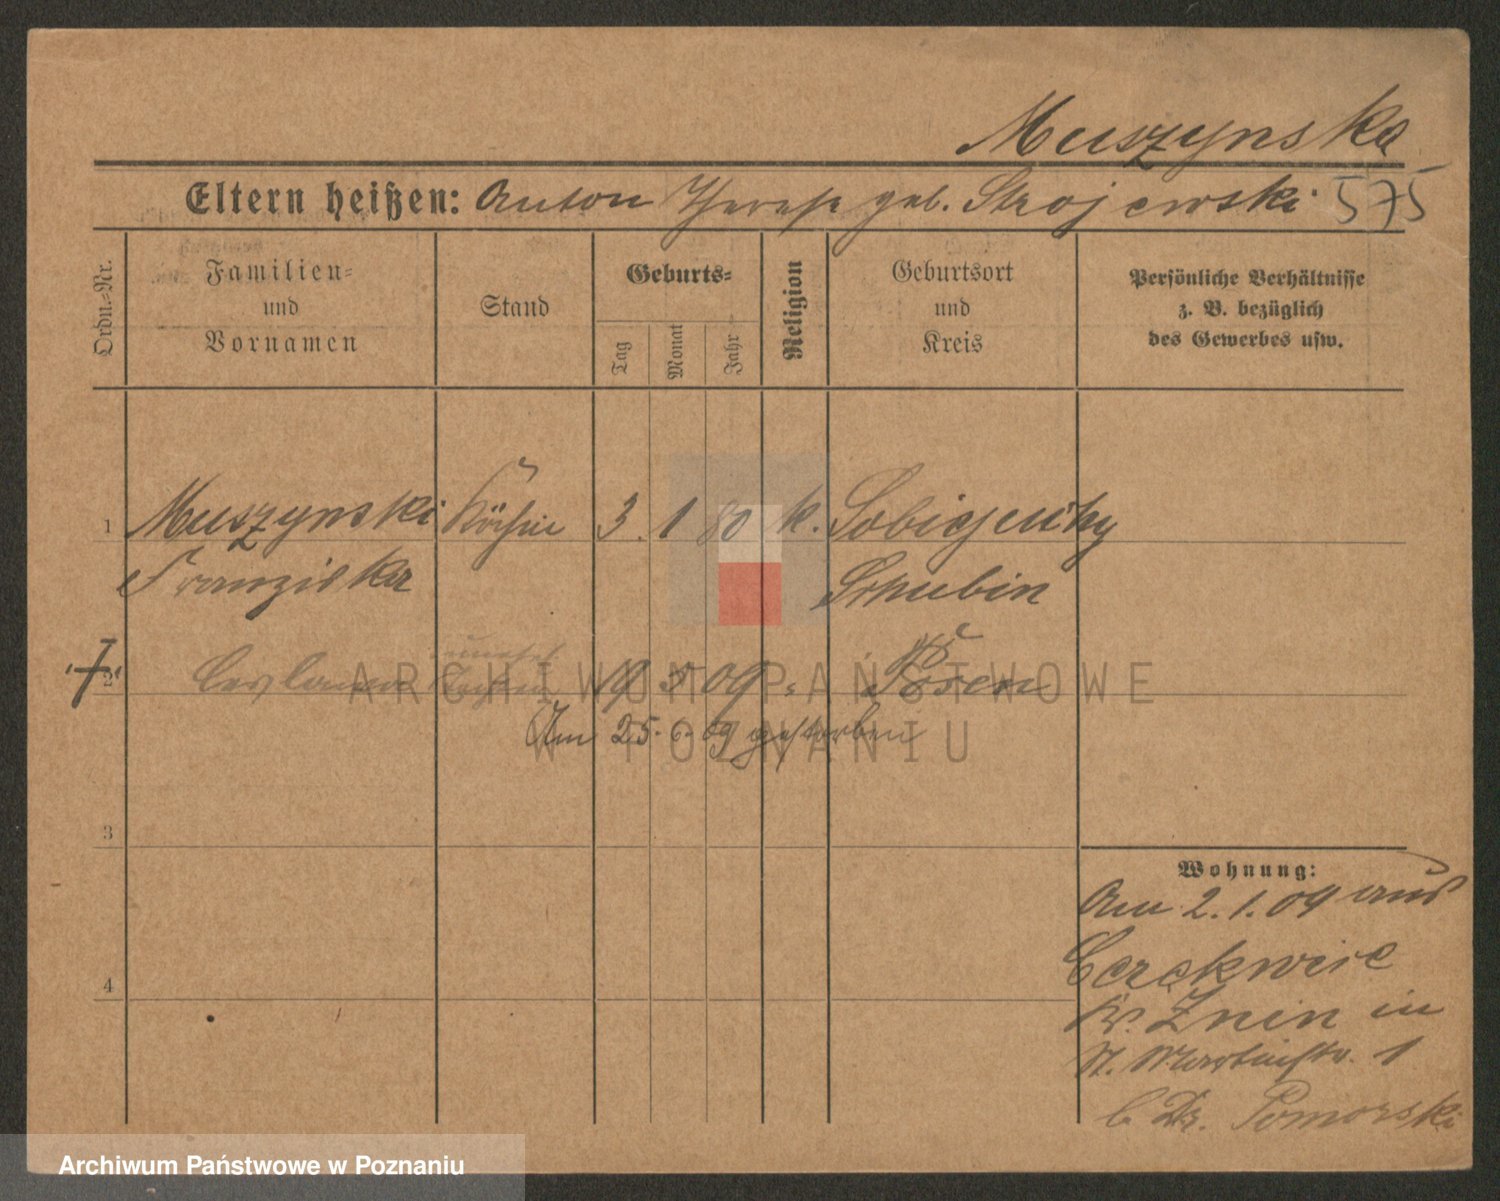 Muszynska
Eltern heißen: Anton Therese geb. Strojewski 575
Ordn.-Nr.
Familien- und Vornamen
Stand
Geburts-
Tag
Monat
Jahr
Religion
Geburtsort und Kreis
Persönliche Verhältnisse
z. B. bezüglich
des Gewerbes usw.
1 Muszynski Köchin 3. 1 80 k.
Franziska Schubin
2 19 3 09 Posen
Am 25. 6. 09 gestorben
3
4
Wohnung:
Am 2. 1. 09 aus
Cerekwice
Kr. Znin in
St. Martinstr. 1
b. Dr. Pomorski
ARCHIWUM PAŃSTWOWE
W POZNANIU
Archiwum Państwowe w Poznaniu